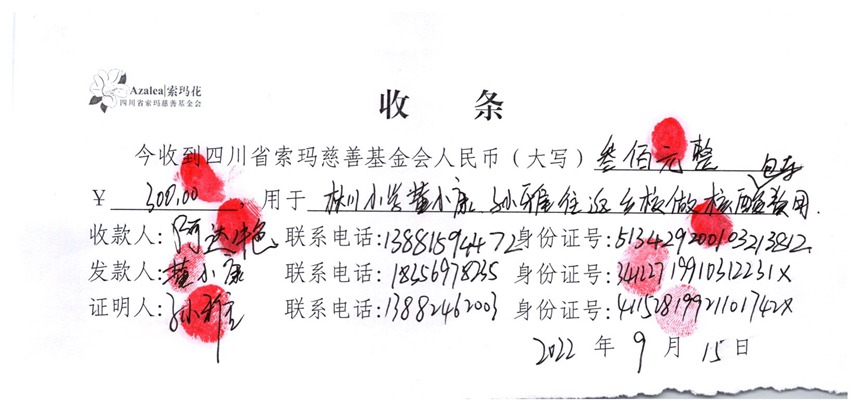 Azalea|索玛花
四川省索玛慈善基金会
收 条
今收到四川省索玛慈善基金会人民币（大写）叁佰元整
¥ 300.00 ，用于 林川小学董小康 孙雅往返乡校做核酸包车费用.
收款人: 阿达 联系电话:13881594472 身份证号:513429200103213812
发款人: 董小康 联系电话:18356978235 身份证号:34122719910312231X
证明人: 孙雅 联系电话:13882462003 身份证号:41152819921101742X
2022 年 9 月 15 日